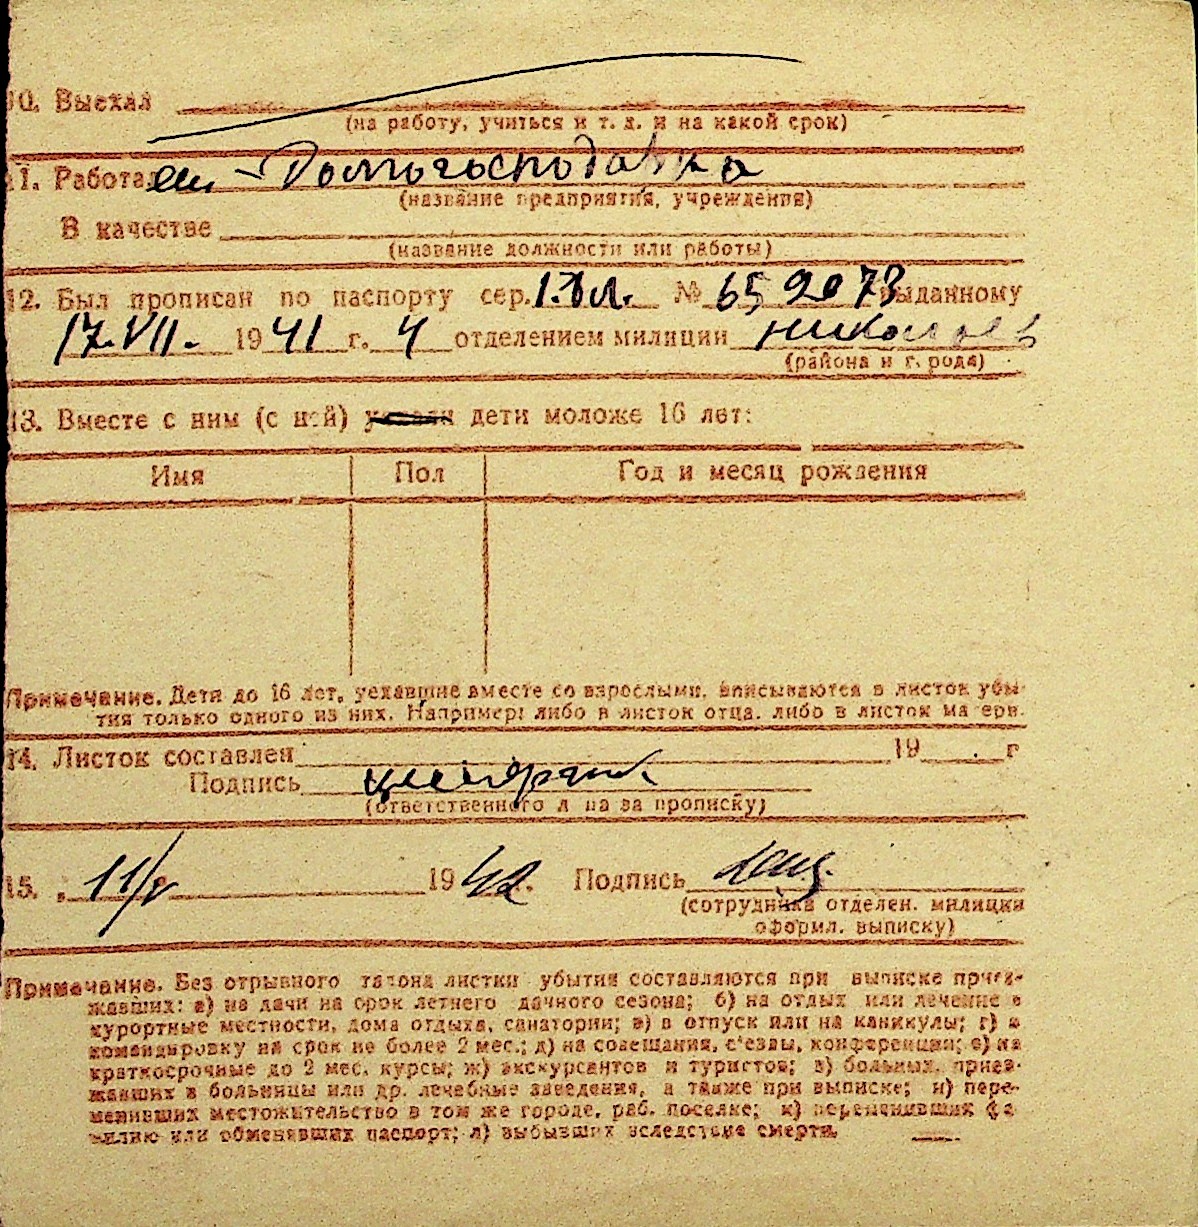 10. Выехал
(на работу, учиться и т. д. и на какой срок)
11. Работал
(название предприятия, учреждения)
В качестве
(название должности или работы)
12. Был прописан по паспорту сер. № 659078 выданному
17.VII. 1941 г. 4 отделением милиции Николаев
(района и города)
13. Вместе с ним (с ней) уехали дети моложе 16 лет:
Имя Пол Год и месяц рождения
Примечание. Дети до 16 лет, уехавшие вместе со взрослыми, вписываются в листок убы-
тия только одного из них. Например: либо в листок отца, либо в листок матери.
14. Листок составлен 19 г
Подпись
(ответственного лица за прописку)
15. 11/ 1942. Подпись
(сотрудника отделен. милиции
оформл. выписку)
Примечание. Без отрывного талона листки убытия составляются при выписке приез-
жавших: а) на дачи на срок летнего дачного сезона; б) на отдых или лечение в
курортные местности, дома отдыха, санатории; в) в отпуск или на каникулы; г) в
командировку на срок не более 2 мес.; д) на совещания, с'езды, конференции; е) на
краткосрочные до 2 мес. курсы; ж) экскурсантов и туристов; з) больных, приез-
жавших в больницы или др. лечебные заведения, а также при выписке; и) пере-
менивших местожительство в том же городе, раб. поселке; к) переменивших фа-
милию или обменявших паспорт; л) выбывших вследствие смерти.